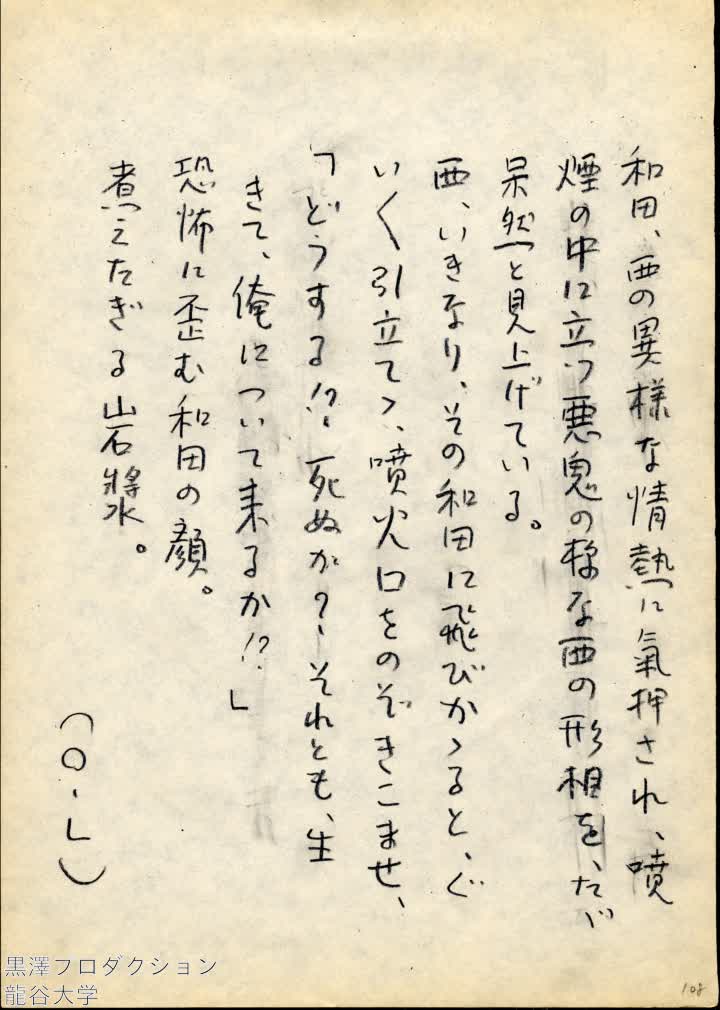 和田、西の異様な情熱に氣押され、噴
煙の中に立つ悪鬼の様な西の形相を、たゞ
呆然と見上げている。
西、いきなり、その和田に飛びかゝると、ぐ
いく引立てゝ、噴火口をのぞきこませ、
「どうする!?死ぬか?それとも、生
きて、俺について来るか!?」
恐怖に歪む和田の顔。
煮えたぎる岩漿。
(O・L)
108
黒澤プロダクション
龍谷大学